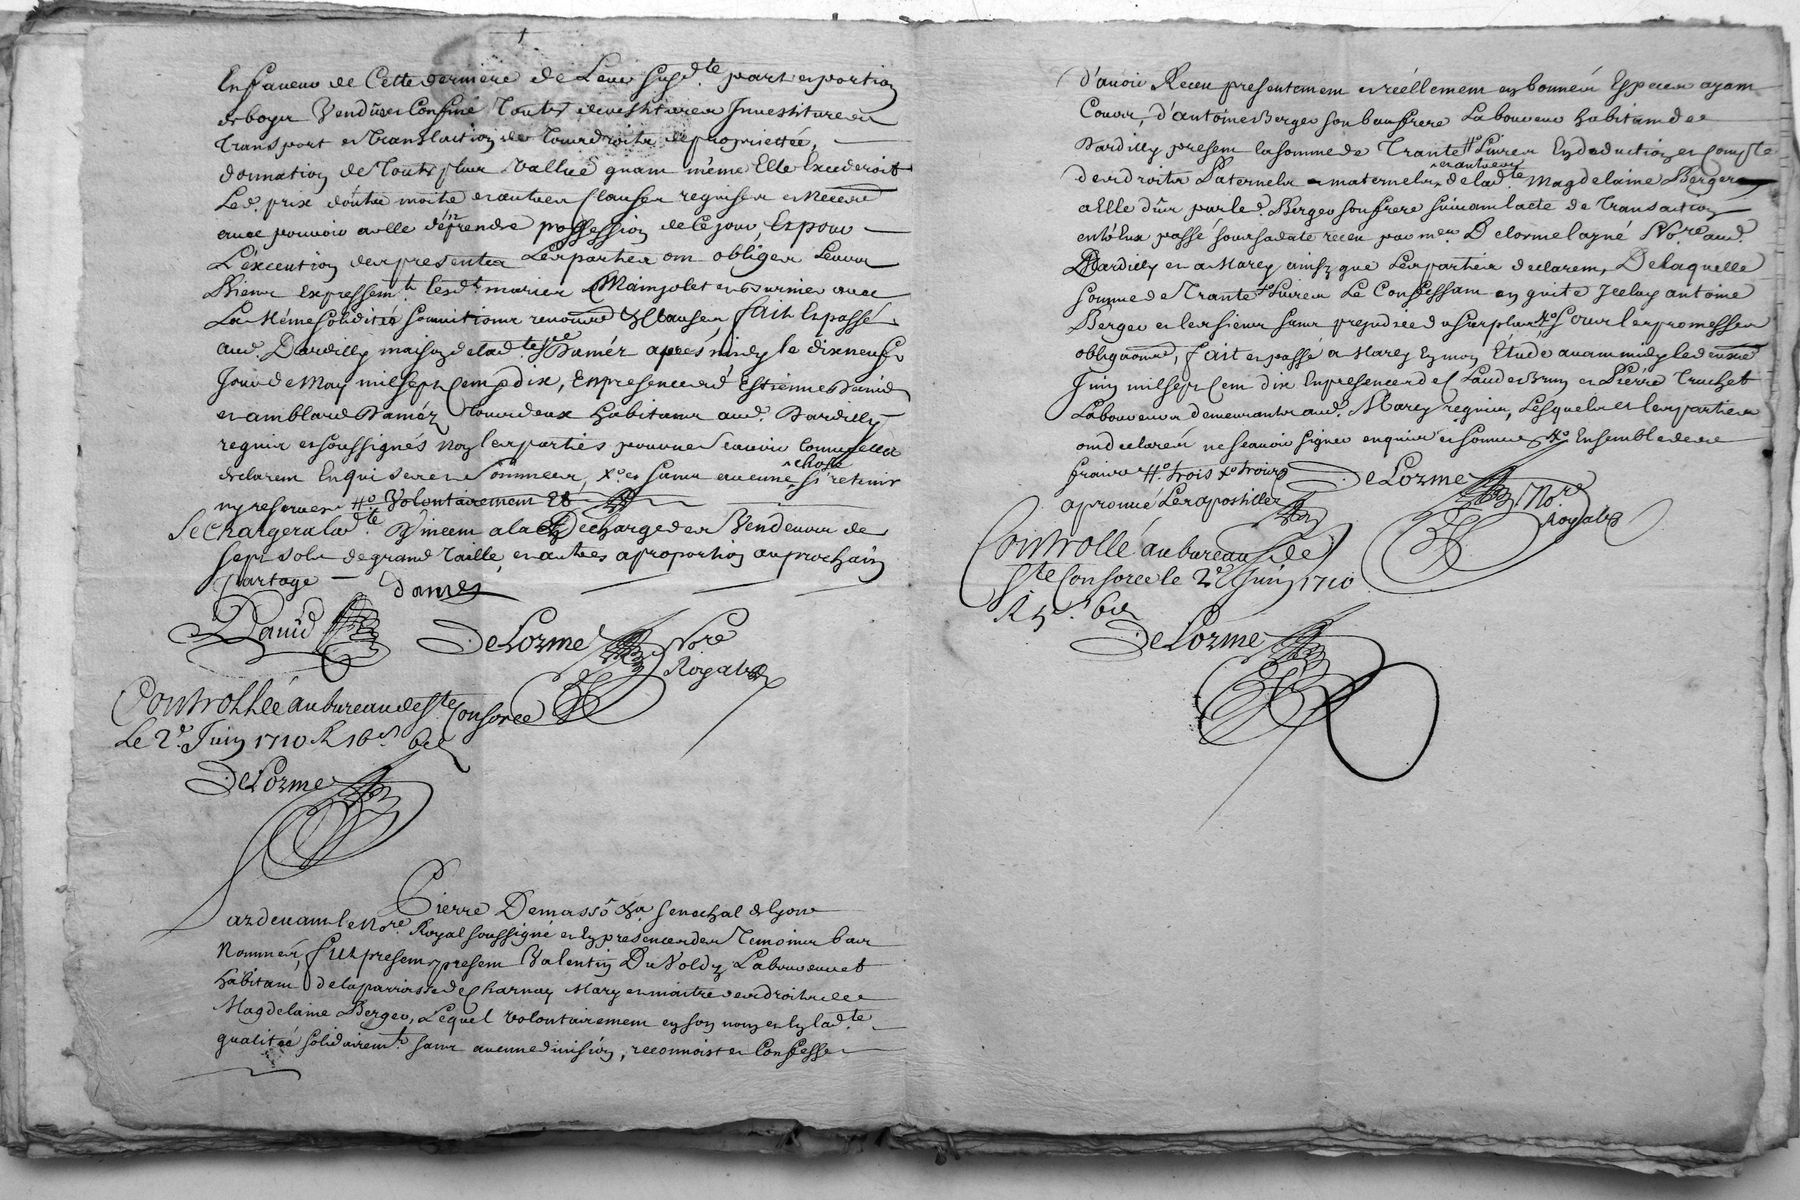 En faveur de Cette derniere de Leur susd.te part et portion
de boyer Vendües Confine Toutes devestitures Investitures
Transport et Translation de Tous droits de proprietté,
donnation de Toute plus Vallue quam même Elle Excederoit
Led. prix d'outre moitié et autres Clauses requises et Necere
avec pouvoir a elle d'en prendre possession de Ce jour, Et pour
L'execution des presentes Les parties ont obligez Leurs
Biens Expressem.t lesd.ts maries Mainjolet et Burnier avec
La Même solidité soumitions renonce & Clauses, fait Et passé
aud. Dardilly maison de lad.te Damez après midy le dixneuf.e
Jour de May mil sept Cents dix, En presence d'Estienne David
et amblard Damez Tous deux habitans aud. Dardilly
requis et soussignés non les parties pour ne scavoir Comme elles
declarent Enquises et sommees, X.o et sans aucune chose si retenir
ny reserver #o Volontairement X8
Se Chargera lad.te a la decharge des Vendeurs de
sept sols de grand Taille, et autres a proportion au prochain
partage — damez
David DeLorme No.re
Royal
Controllée au bureau de S.te Consorce
Le 2.e Juin 1710 R 16 s. 6 d.
DeLorme
Pierre Demasso &a senechal de lyon
Pardevant le No.re Royal soussigné et En presence des Temoins bas
Nommés, fut present Valentin Du Voldy Laboureur et
habitant de la parroisse de Charnay Mary et maitre des droits de
Magdelaine Berger, Lequel volontairement en son nom et En lad.te
qualitée solidairem.t sans aucune division, reconnoist et Confesse
d'avoir Receu presentement et réellement en bonnes Especes ayant
Cours, d'antoine Berger son beaufrere Laboureur habitant de
Dardilly present la somme de Trante #o Livres En deduction et Compte
des droits Paternels et maternels et autres de lad.te Magdelaine Berger
a Elle dûs par led. Berger son frere suivant lacte de Transaction
entr'Eux passé sous sa date receu par m.e Delorme layné No.re aud.
Dardilly et a Marcy ainsy que Les parties declarent, De laquelle
somme de Trante #o Livres Le Confessant en quite Jceluy antoine
Berger et les siens sans prejudice du surplus X.o Sous les promesses
obligaons, fait et passé a Marcy En mon Etude avant midy le deuxme
Juin mil sept Cent dix En presence de Claude Brun et Pierre Truchet
Laboureurs demeurants aud. Marcy requis, Lesquels et les parties
ont declarés ne scavoir signer enquis et sommes X.o Ensemble de
fraire #o trois X.o trois
aprouvé Les apostilles DeLorme No.re
Royal
Controllé au bureau de
S.te Consorce le 2.e Juin 1710
R 5 s. 6 d.
DeLorme